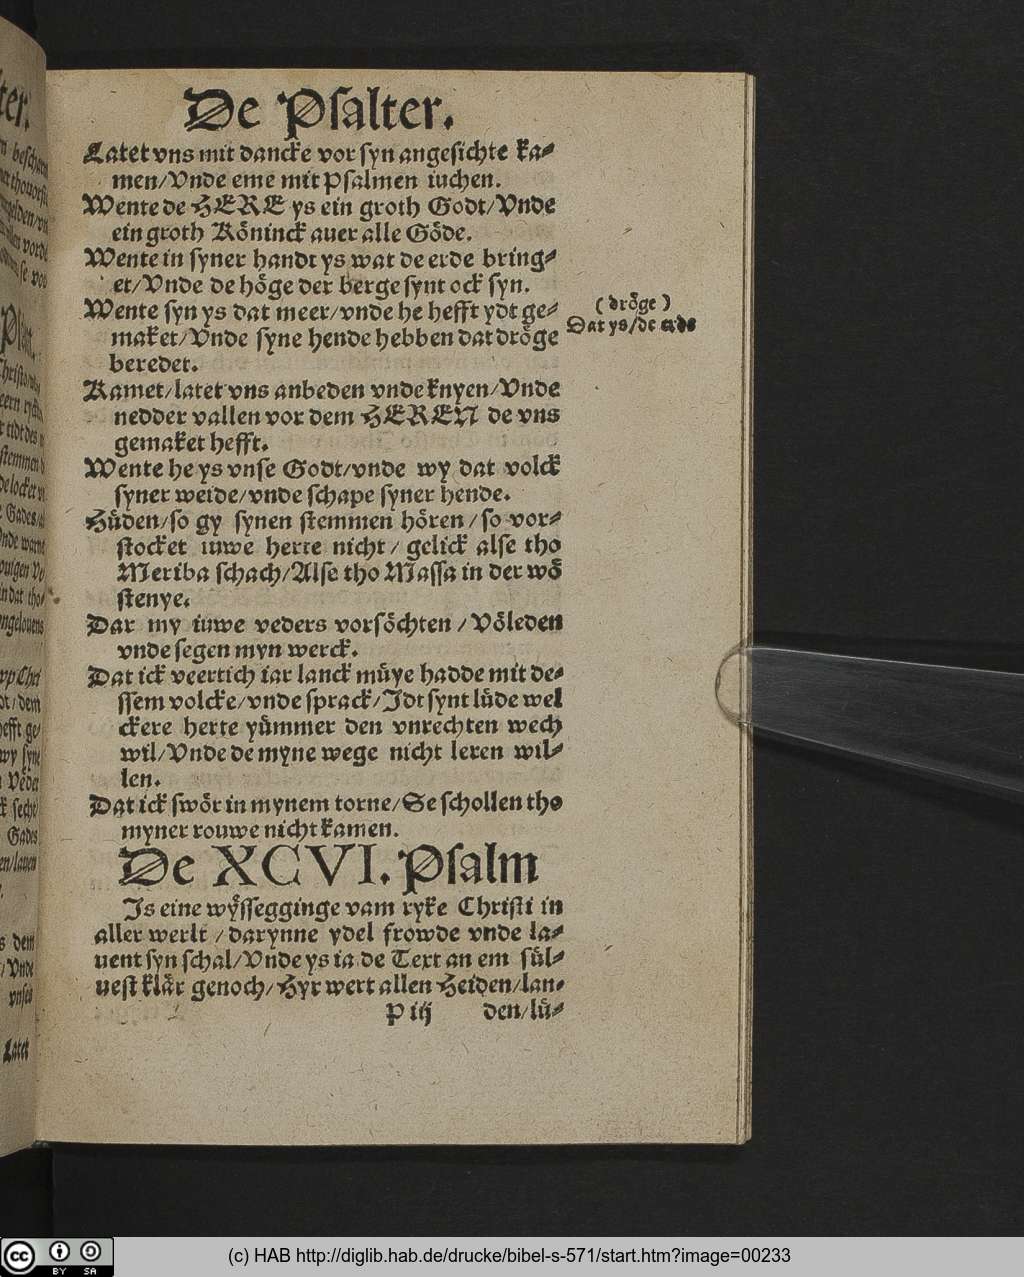 De Psalter.
Latet vns mit dancke vor syn angesichte ka-
men/Vnde eme mit Psalmen iuchen.
Wente de HERE ys ein groth Godt/Vnde
ein groth Köninck auer alle Göde.
Wente in syner handt ys wat de erde bring-
et/Vnde de höge der berge synt ock syn.
Wente syn ys dat meer/vnde he hefft ydt ge-
maket/Vnde syne hende hebben dat dröge
beredet.
(dröge)
Dat ys/de erde
Kamet/latet vns anbeden vnde knyen/Vnde
nedder vallen vor dem HEREN de vns
gemaket hefft.
Wente he ys vnse Godt/vnde wy dat volck
syner weide/vnde schape syner hende.
Hüden/so gy synen stemmen hören/so vor-
stocket iuwe herte nicht/ gelick alse tho
Meriba schach/Alse tho Massa in der wö
stenye.
Dar my iuwe veders vorsöchten/Völeden
vnde segen myn werck.
Dat ick veertich iar lanck müye hadde mit de-
ssem volcke/vnde sprack/Idt synt lüde wel
ckere herte yümmer den vnrechten wech
wil/Vnde de myne wege nicht leren wil-
len.
Dat ick swör in mynem torne/Se schollen tho
myner rouwe nicht kamen.
De XCVI. Psalm
Is eine wyssegginge vam ryke Christi in
aller werlt/darynne ydel frowde vnde la-
uent syn schal/Vnde ys ia de Text an em sül-
uest klär genoch/Hyr wert allen Heiden/lan-
P iij den/lü-
(c) HAB http://diglib.hab.de/drucke/bibel-s-571/start.htm?image=00233
cc BY SA